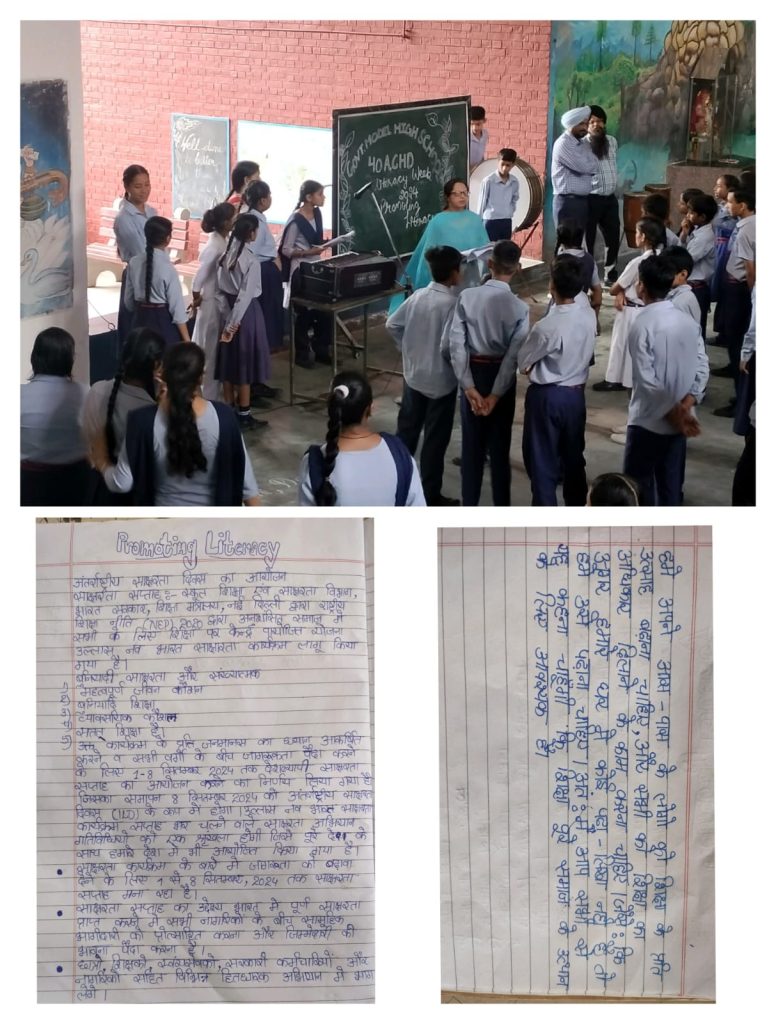 Well done
is better
GOVT. MODEL HIGH SCH
40 A, CHD
Literacy Week
2024
Promoting
literacy
Promoting Literacy
अंतर्राष्ट्रीय साक्षरता दिवस का आयोजन
साक्षरता सप्ताह :- स्कूल शिक्षा एवं साक्षरता विभाग,
भारत सरकार, शिक्षा मंत्रालय, नई दिल्ली द्वारा राष्ट्रीय
शिक्षा नीति (NEP) 2020 द्वारा अनुशंसित समाज में
सभी के लिए शिक्षा पर केन्द्र प्रायोजित योजना
उल्लास नव भारत साक्षरता कार्यक्रम लागू किया
गया है।
1) बुनियादी साक्षरता और संख्यात्मक
2) महत्वपूर्ण जीवन कौशल
3) बुनियादि शिक्षा
4) व्यावसायिक कौशल
5) सतत् शिक्षा है।
उक्त कार्यक्रम के प्रति जनमानस का ध्यान आकर्षित
करने व सभी वर्गों के बीच जागरूकता पैदा करने
के लिए 1-8 सितम्बर 2024 तक देशव्यापी साक्षरता
सप्ताह का आयोजन करने का निर्णय लिया गया है
जिसका समापन 8 सितम्बर 2024 को अंतर्राष्ट्रीय साक्षरता
दिवस (ILD) के रूप में होगा। उल्लास नव भारत साक्षरता
कार्यक्रम सप्ताह भर चलने वाले साक्षरता अभियान
गतिविधियों की एक श्रृंखला होगी जिसे पूरे देश के
साथ हमारे देश में भी आयोजित किया गया है।
• साक्षरता कार्यक्रम के बारे में जागरूकता को बढ़ावा
देने के लिए 1 से 8 सितम्बर, 2024 तक साक्षरता
सप्ताह मना रहा है।
• साक्षरता सप्ताह का उद्देश्य भारत में पूर्ण साक्षरता
प्राप्त करने में सभी नागरिकों के बीच सामूहिक
भागीदारी को प्रोत्साहित करना और जिम्मेदारी की
भावना पैदा करना है।
• छात्रों शिक्षकों स्वयंसेवकों, सरकारी कर्मचारियों और
नागरिकों सहित विभिन्न हितधारक अभियान में भाग
लेंगे।
हमें अपने आस-पास के लोगों को शिक्षा के प्रति
उत्साह बढ़ाना चाहिए, और सभी को शिक्षा का
अधिकार दिलाने के काम करना चाहिए
अगर हमारे घर में कोई पढ़ा-लिखा नहीं है तो
हमें उसे पढ़ाना चाहिए। अंत में मैं आप सभी से
यह कहना चाहूँगी कि शिक्षा पूरे समाज के उत्थान
के लिए आवश्यक है।